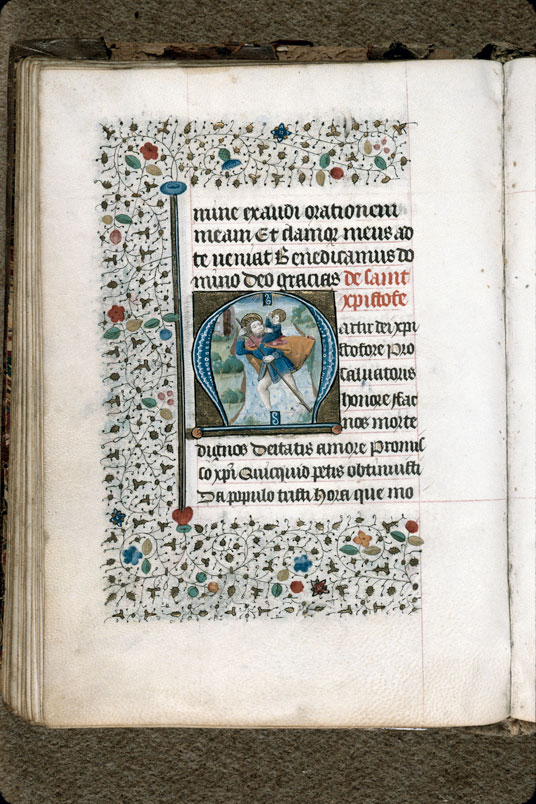 mine exaudi orationem
meam Et clamor meus ad
te ueniat Benedicamus do
mino deo gracias de saint
xpistofe
Martir dei xpi
stofore pro
saluatoris
honore ffac
nos morte
dignos deitatis amore Promis
so xpi Quicquid petis obtinuisti
Da populo tristi hora que mo